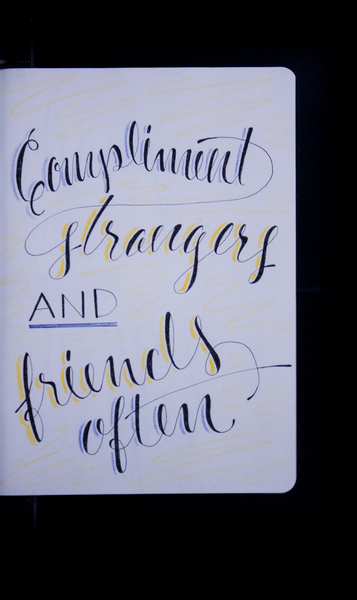 Compliment
strangers
AND
friends
often